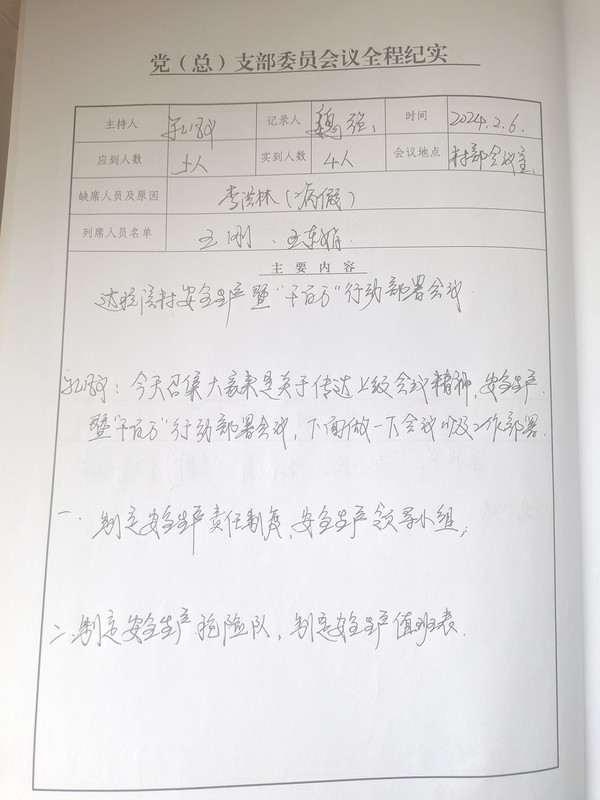 党（总）支部委员会议全程纪实
主持人 记录人 魏强 时间 2024.2.6.
应到人数 5人 实到人数 4人 会议地点 村部会议室
缺席人员及原因 李洪林（病假）
列席人员名单 王刚、王东娟
主要内容
安全生产暨“千百万”行动部署会议
：今天召集大家来是关于传达上级会议精神，安全生产
暨“千百万”行动部署会议，下面做一下会议以及工作部署.
一、制定安全生产责任制度，安全生产领导小组；
二、制定安全生产抢险队，制定安全生产值班表.